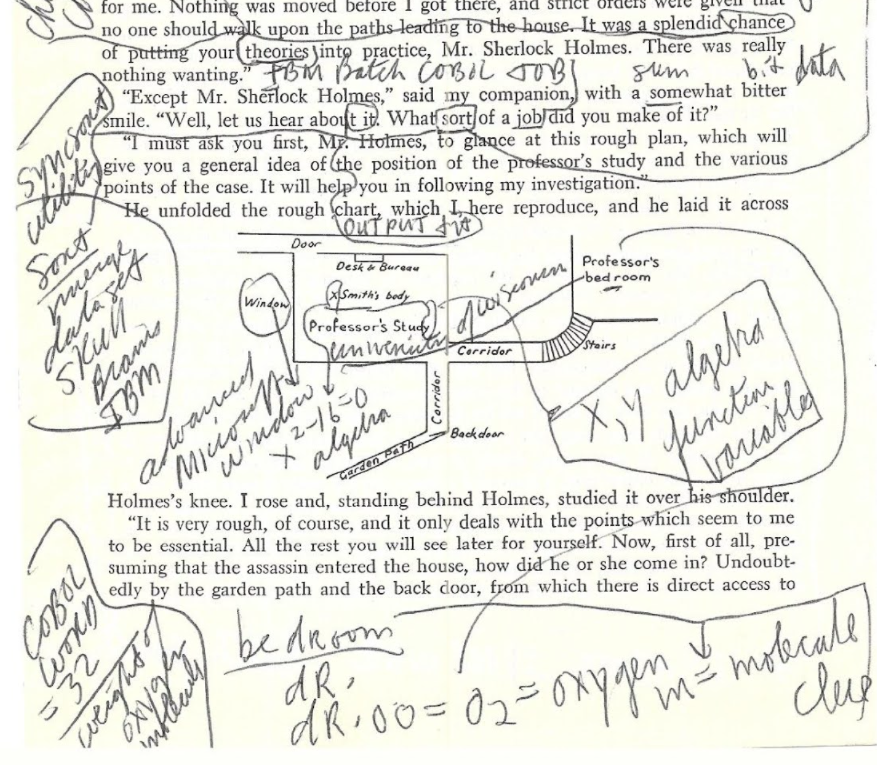 for me. Nothing was moved before I got there, and strict orders were given that
no one should walk upon the paths leading to the house. It was a splendid chance
of putting your theories into practice, Mr. Sherlock Holmes. There was really
nothing wanting.”
IBM Batch COBOL JOB
sum bit data
“Except Mr. Sherlock Holmes,” said my companion, with a somewhat bitter
smile. “Well, let us hear about it. What sort of a job did you make of it?”
“I must ask you first, Mr. Holmes, to glance at this rough plan, which will
give you a general idea of the position of the professor’s study and the various
points of the case. It will help you in following my investigation.”
He unfolded the rough chart, which I here reproduce, and he laid it across
Syncsort
utility
Sort
merge
dataset
Skill
Brains
IBM
OUTPUT
Door
Desk & Bureau
X Smith's body
Window
Professor's Study
university
of wisconsin
Professor's
bed room
Corridor
Stairs
Corridor
Backdoor
Garden Path
advanced
Microsoft
window
x²-16=0
algebra
X, Y algebra
function
variable
Holmes’s knee. I rose and, standing behind Holmes, studied it over his shoulder.
“It is very rough, of course, and it only deals with the points which seem to me
to be essential. All the rest you will see later for yourself. Now, first of all, pre-
suming that the assassin entered the house, how did he or she come in? Undoubt-
edly by the garden path and the back door, from which there is direct access to
COBOL
WORD
= 32
weight of
oxygen
molecule
bedroom
dR,
dR, OO = O2 = oxygen m = molecule
clue